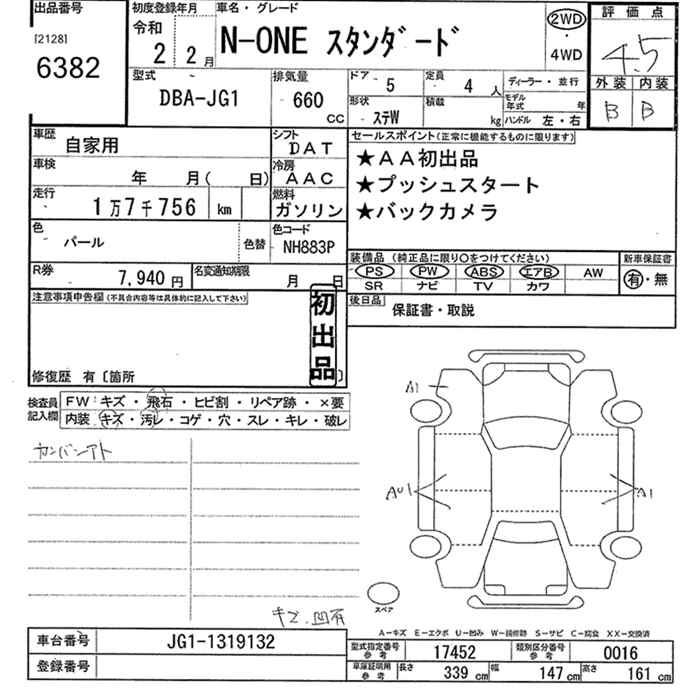 出品番号
[2128]
6382
初度登録年月
令和
2 2月
車名・グレード
N-ONE スタンダード
2WD
・
4WD
評価点
4.5
外装 内装
B B
型式
DBA-JG1
排気量
660 cc
ドア 5
定員 4 人
形状 ステW
積載 kg
ディーラー・並行
モデル年式 年
ハンドル 左・右
車歴 自家用
シフト DAT
車検 年 月( 日)
冷房 AAC
走行 1万7千756 km
燃料 ガソリン
色 パール
色替
色コード NH883P
R券 7,940円
名変通知期限 月 日
セールスポイント(正常に機能するものに限ります)
★AA初出品
★プッシュスタート
★バックカメラ
装備品 (純正品に限り○をつけてください)
PS PW ABS エアB AW
SR ナビ TV カワ
新車保証書
有・無
後日品 保証書・取説
注意事項申告欄(不具合内容等は具体的に記入して下さい)
初出品
修復歴 有〔箇所 〕
検査員記入欄
FW: キズ・飛石・ヒビ割・リペア跡・×要
内装: キズ・汚レ・コゲ・穴・スレ・キレ・破レ
カンバンアト
キズ、凹有
A1
AU1
A1
スペア
A-キズ E-エクボ U-凹み W-補修跡 S-サビ C-腐食 XX-交換済
車台番号 JG1-1319132
登録番号
型式指定番号 参考 17452
類別区分番号 参考 0016
車庫証明用 参考 長さ 339 cm 幅 147 cm 高さ 161 cm